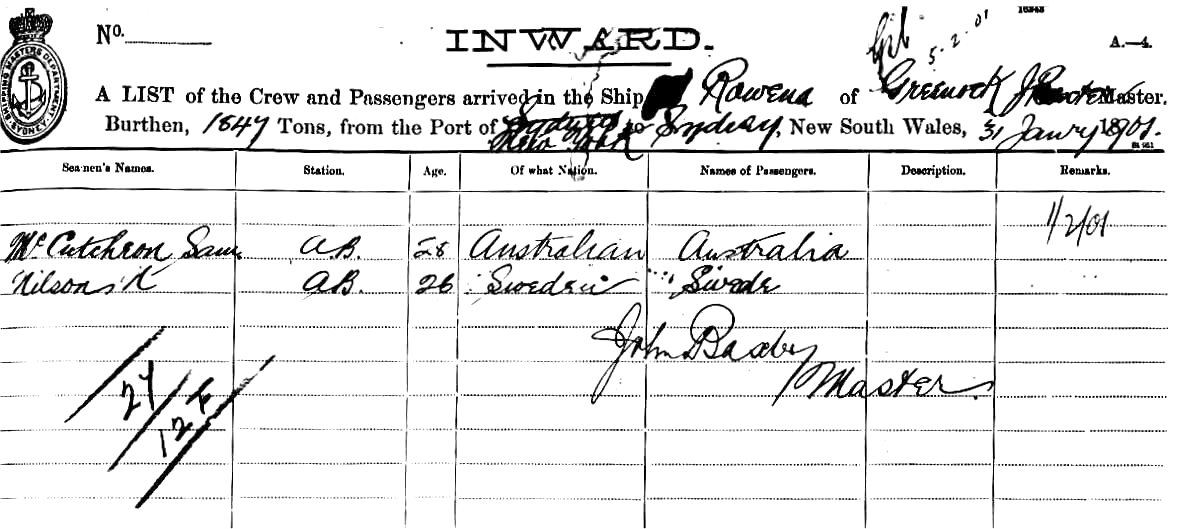 No.
INWARD.
5-2-01
A.—4.
A LIST of the Crew and Passengers arrived in the Ship Rowena of Greenock J Master.
Burthen, 1847 Tons, from the Port of Sydney New York to Sydney, New South Wales, 31 Janry 1901.
SHIPPING MASTERS DEPARTMENT SYDNEY
Seamen's Names. Station. Age. Of what Nation. Names of Passengers. Description. Remarks.
1/2/01
McCutcheon Sam A.B. 28 Australian Australia
Nilson K A.B. 26 Sweden Swede
John Baxby
Master.
27
12 F